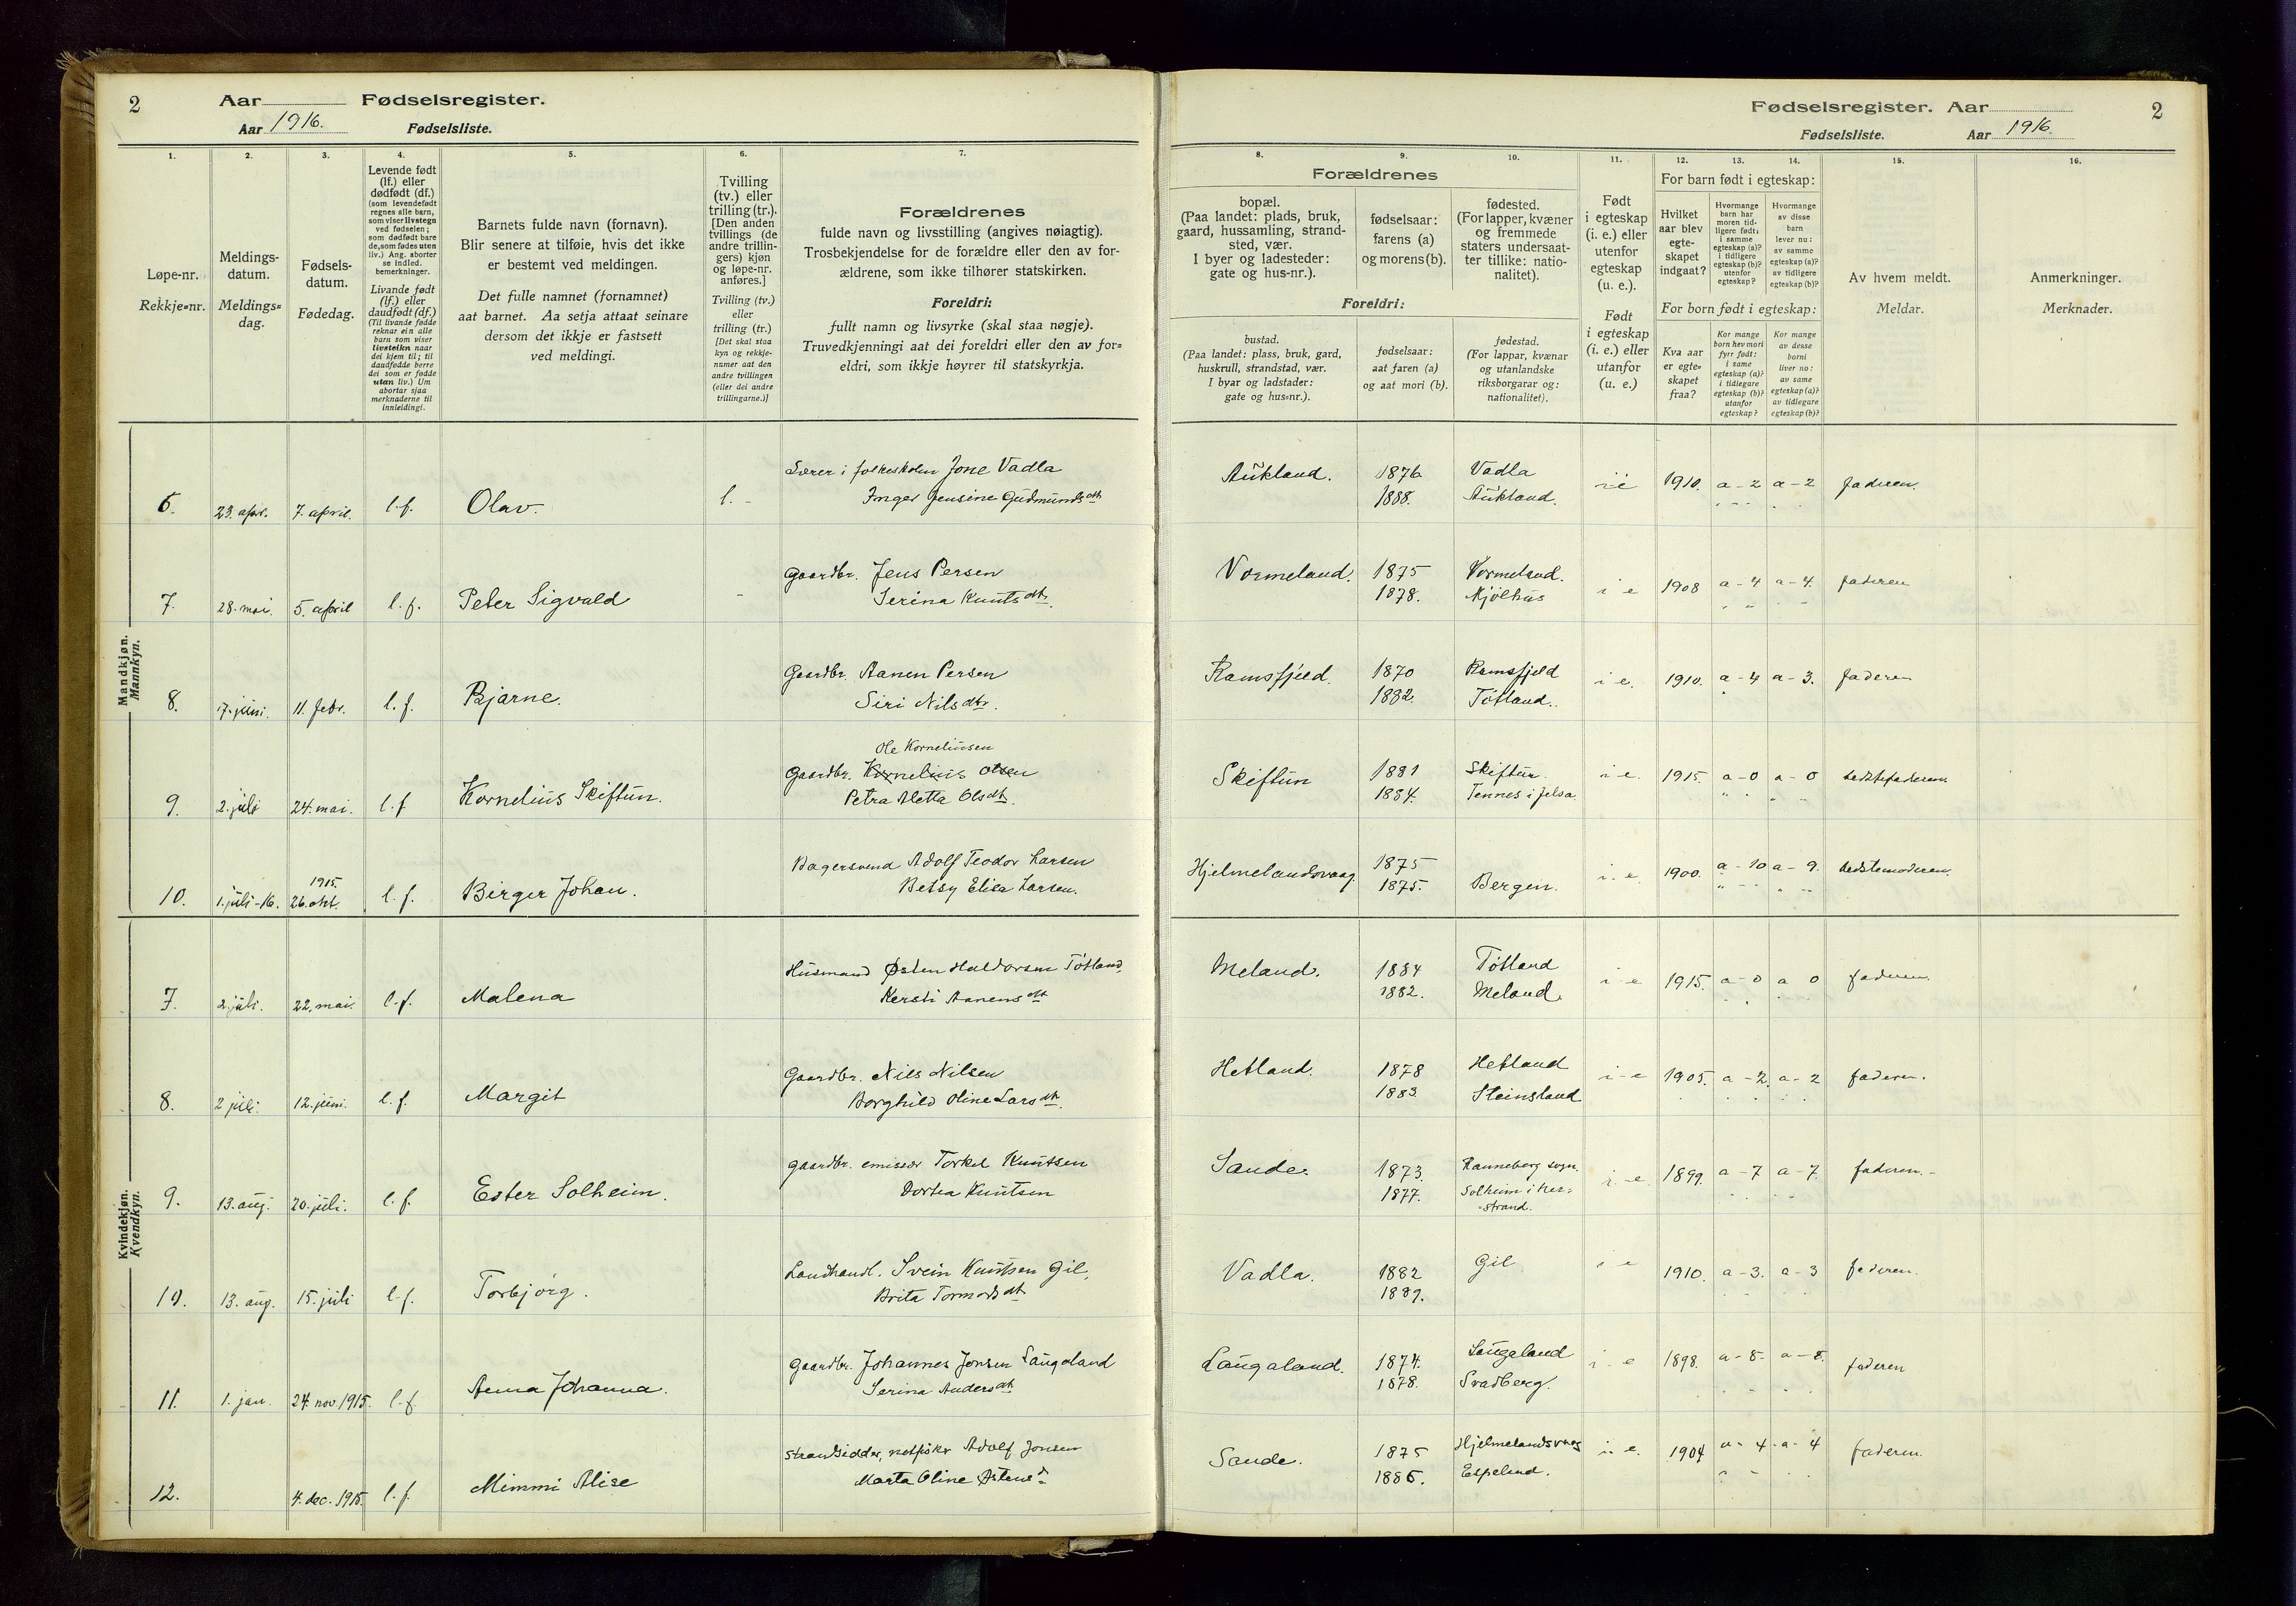 2 Aar Fødselsregister.
Aar 1916. Fødselsliste.
1. 2. 3. 4. 5. 6. 7.
Løpe-nr.
Rekkje=nr.
Meldings-
datum.
Meldings=
dag.
Fødsels-
datum.
Fødedag.
Levende født
(lf.) eller
dødfødt (df.)
(som levendefødt
regnes alle barn,
som viser livstegn
ved fødselen;
som dødfødt bare
de, som fødes uten
liv.) Ang. aborter
se indled.
bemerkninger.
Livande født
(lf.) eller
daudfødt (df.)
(Til livande fødde
reknar ein alle
barn som viser
livsteikn naar
dei kjem til; til
daudfødde berre
dei som er fødde
utan liv.) Um
abortar sjaa
merknaderne til
innleidingi.
Barnets fulde navn (fornavn).
Blir senere at tilføie, hvis det ikke
er bestemt ved meldingen.
Det fulle namnet (fornamnet)
aat barnet. Aa setja attaat seinare
dersom det ikkje er fastsett
ved meldingi.
Tvilling
(tv.) eller
trilling (tr.).
[Den anden
tvillings (de
andre trillin-
gers) kjøn
og løpe-nr.
anføres.]
Tvilling (tv.)
eller
trilling (tr.)
[Det skal staa
kyn og rekkje-
numer aat den
andre tvillingen
(eller dei andre
trillingarne.)]
Forældrenes
fulde navn og livsstilling (angives nøiagtig).
Trosbekjendelse for de forældre eller den av for-
ældrene, som ikke tilhører statskirken.
Foreldri:
fullt namn og livsyrke (skal staa nøgje).
Truvedkjenningi aat dei foreldri eller den av for=
eldri, som ikkje høyrer til statskyrkja.
Mandkjøn.
Mannkyn.
6. 23. apr. 7. april. l.f. Olav. l. -
Lærer i folkeskolen Jone Vadla
Inger Jensine Gudmundsdtr
7. 28. mai. 5. april l.f. Peter Sigvald -
Gaardbr. Jens Persen
Serina Knutsdtr.
8. 17. juni. 11. febr. l.f. Bjarne.
Gaardbr. Aanen Persen
Siri Nilsdtr.
Ole Korneliusen
9. 2. juli 24. mai. l.f Kornelius Skiftun.
Gaardbr. Kornelius Olsen
Petra Aletta Olsdtr.
10. 1. juli-16. 1915. 26. okt. l.f. Birger Johan.
Bagersvend Adolf Teodor Larsen
Betsy Elisa Larsen.
Kvindekjøn.
Kvendkyn.
7. 2. juli. 22. mai. l.f. Malena
Husmand Østen Haldorsen Tøtland,
Kersti Aanensdtr
8. 2 juli. 12. juni. l.f. Margit
Gaardbr. Nils Nilsen
Borghild Oline Larsdtr.
9. 13. aug. 20. juli. l.f. Ester Solheim.
gaardbr. emissær Torkel Knutsen
Dortea Knutsen
10. 13. aug. 15. juli l.f. Torbjørg.
Landhandl. Svein Knutsen Gil,
Brita Tormodsdtr
11. 1. jan. 24. nov. 1915. l.f. Anna Johanna.
Gaardbr. Johannes Jonsen Laugaland
Serina Andersdtr
12. 4. dec. 1915. l.f. Mimmi Alise
Strandsidder, notfisker Adolf Jonsen
Marta Oline Østensd
Fødselsregister. Aar 2
Fødselsliste. Aar 1916.
8. 9. 10. 11. 12. 13. 14. 15. 16.
Forældrenes
bopæl.
(Paa landet: plads, bruk,
gaard, hussamling, strand-
sted, vær.
I byer og ladesteder:
gate og hus-nr.).
fødselsaar:
farens (a)
og morens (b).
fødested.
(For lapper, kvæner
og fremmede
staters undersaat-
ter tillike: natio-
nalitet).
Foreldri:
bustad.
(Paa landet: plass, bruk, gard,
huskrull, strandstad, vær.
I byar og ladstader:
gate og hus=nr.).
fødselsaar:
aat faren (a)
og aat mori (b).
fødestad.
(For lappar, kvænar
og utanlandske
riksborgarar og:
nationalitet).
Født
i egteskap
(i. e.) eller
utenfor
egteskap
(u. e.).
Født
i egteskap
(i. e.) eller
utanfor
(u. e.)
For barn født i egteskap:
Hvilket
aar blev
egte-
skapet
indgaat?
Hvormange
barn har
moren tid-
ligere født:
i samme
egteskap (a)?
i tidligere
egteskap (b)?
utenfor
egteskap?
Hvormange
av disse
barn
lever nu:
av samme
egteskap (a)?
av tidligere
egteskap (b)?
For born født i egteskap:
Kva aar
er egte=
skapet
fraa?
Kor mange
born hev mori
fyrr født:
i same
egteskap (a)?
i tidlegare
egteskap (b)?
utanfor
egteskap?
Kor mange
av desse
borni
liver no:
av same
egteskap (a)?
av tidlegare
egteskap (b)?
Av hvem meldt.
Meldar.
Anmerkninger.
Merknader.
Aukland. 1876 Vadla i e 1910. a-2 a-2 faderen.
1888. Aukland.
Vormeland. 1875 Vormeland. i e 1908 a-4 a-4. faderen
1878. Kjølhus
Ramsfjeld. 1870 Ramsfjeld i e. 1910. a-4 a-3. faderen
1882. Tøtland.
Skiftun 1881 Skiftun. i e. 1915. a-0 a-0 bedstefaderen
1884. Tennes i Jelsa
Hjelmelandsvaag. 1875 i. e. 1900. a-10 a-9. bedstemoderen.
1875. Bergen.
Meland. 1884 Tøtland i e 1915. a-0 a 0 faderen.
1882. Meland.
Hetland. 1878 Hetland i-e 1905. a-2 a-2 faderen.
1883. Steinsland
Sande. 1873. Ranneberg sogn. i. e 1899. a-7 a-7. faderen.-
1877. Solheim i Ner=
=strand.
Vadla. 1882 Gil i e 1910. a-3. a-3 faderen.
1889.
Laugaland. 1874. Laugaland i-e 1898. a-8- a-8. faderen
1878. Svadberg.
Sande. 1875 Hjelmelandsvaag i e. 1904 a-4. a-4 faderen.
1886. Espeland.